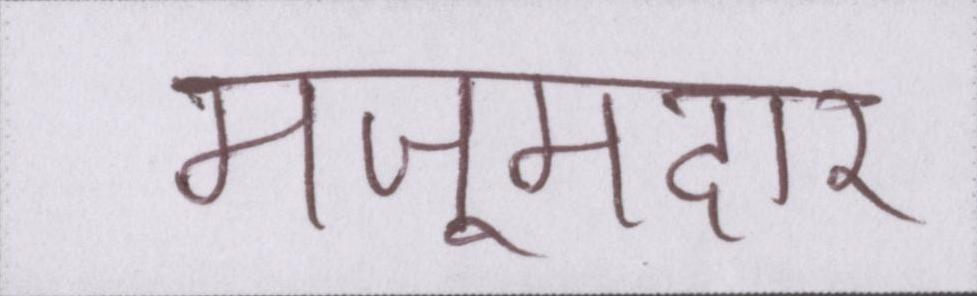 मजूमदार